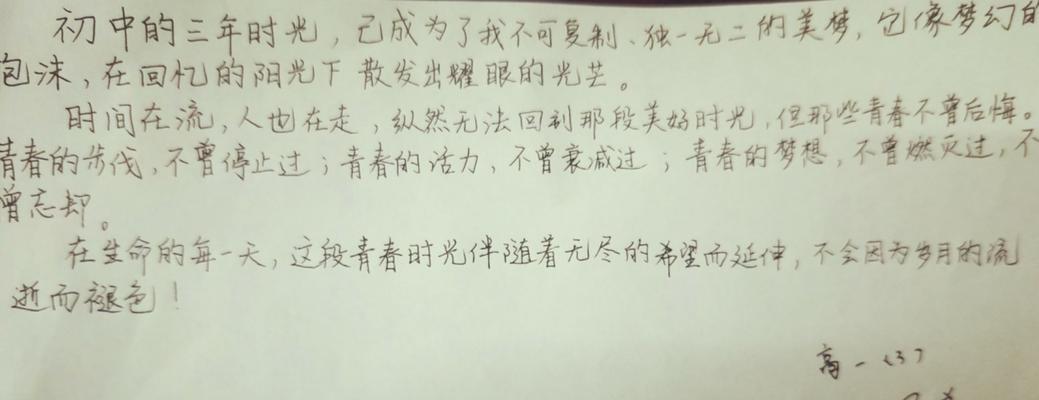 初中的三年时光，已成为了我不可复制、独一无二的美梦，它像梦幻的
泡沫，在回忆的阳光下散发出耀眼的光芒。
时间在流，人也在走，纵然无法回到那段美好时光，但那些青春不曾后悔。
青春的步伐，不曾停止过；青春的活力，不曾衰减过；青春的梦想，不曾燃灭过，不
曾忘却。
在生命的每一天，这段青春时光伴随着无尽的希望而延伸，不会因为岁月的流
逝而褪色！
高一（3）